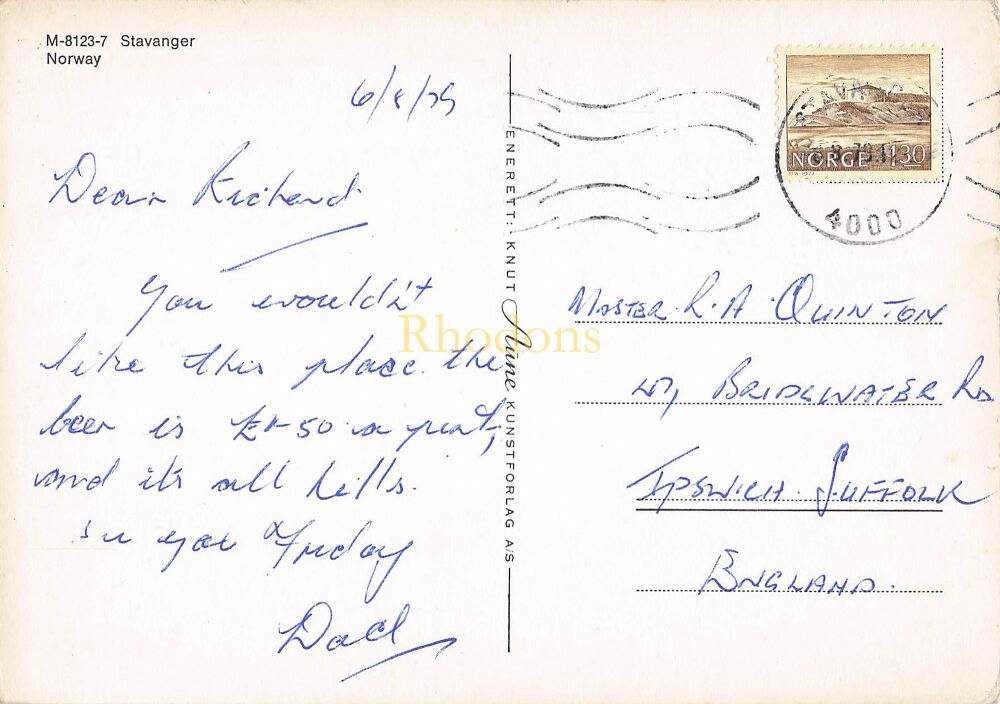 M-8123-7 Stavanger
Norway
6/8/79
Dear Richard
You wouldn't
like this place the
beer is £1-50 a pint,
and it's all hills.
See you Friday
Dad
ENERETT: KNUT Aune KUNSTFORLAG A/S
NORGE 130
4000
MASTER R.A. QUINTON
BRIDGWATER RD
IPSWICH. SUFFOLK
ENGLAND.
Rhodons